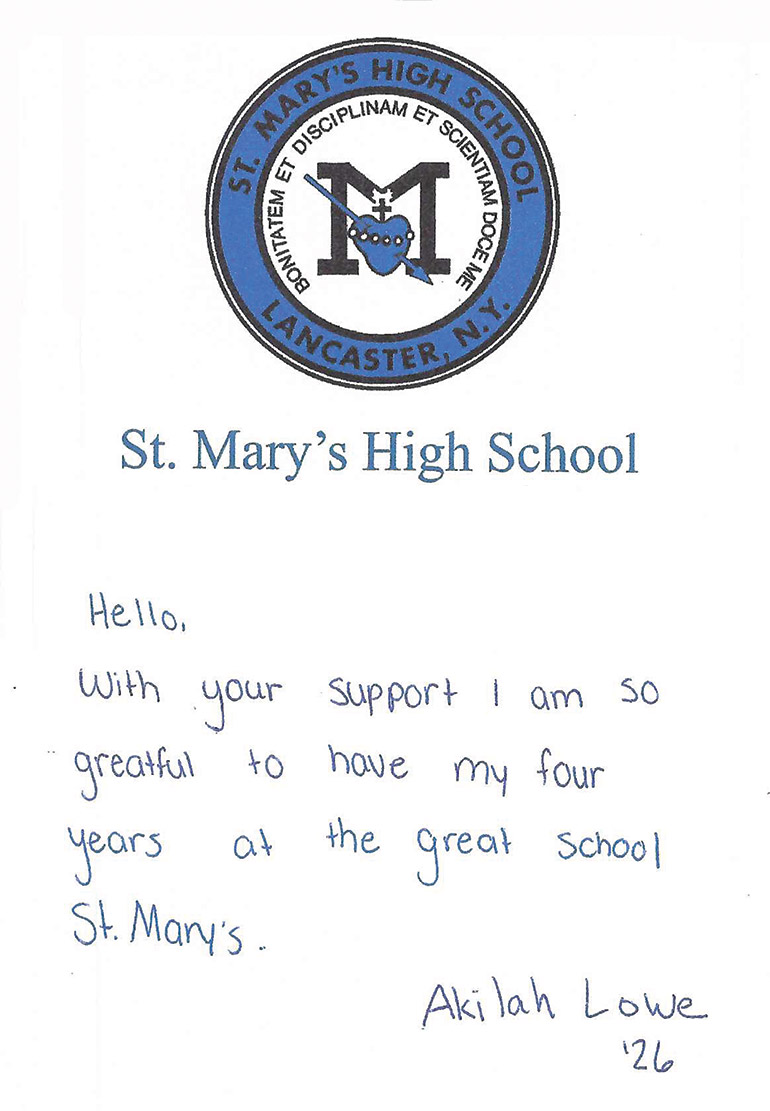 ST. MARY'S HIGH SCHOOL
BONITATEM ET DISCIPLINAM ET SCIENTIAM DOCE ME
M
LANCASTER, N.Y.
St. Mary's High School
Hello,
With your support I am so
greatful to have my four
years at the great school
St. Mary's.
Akilah Lowe
'26